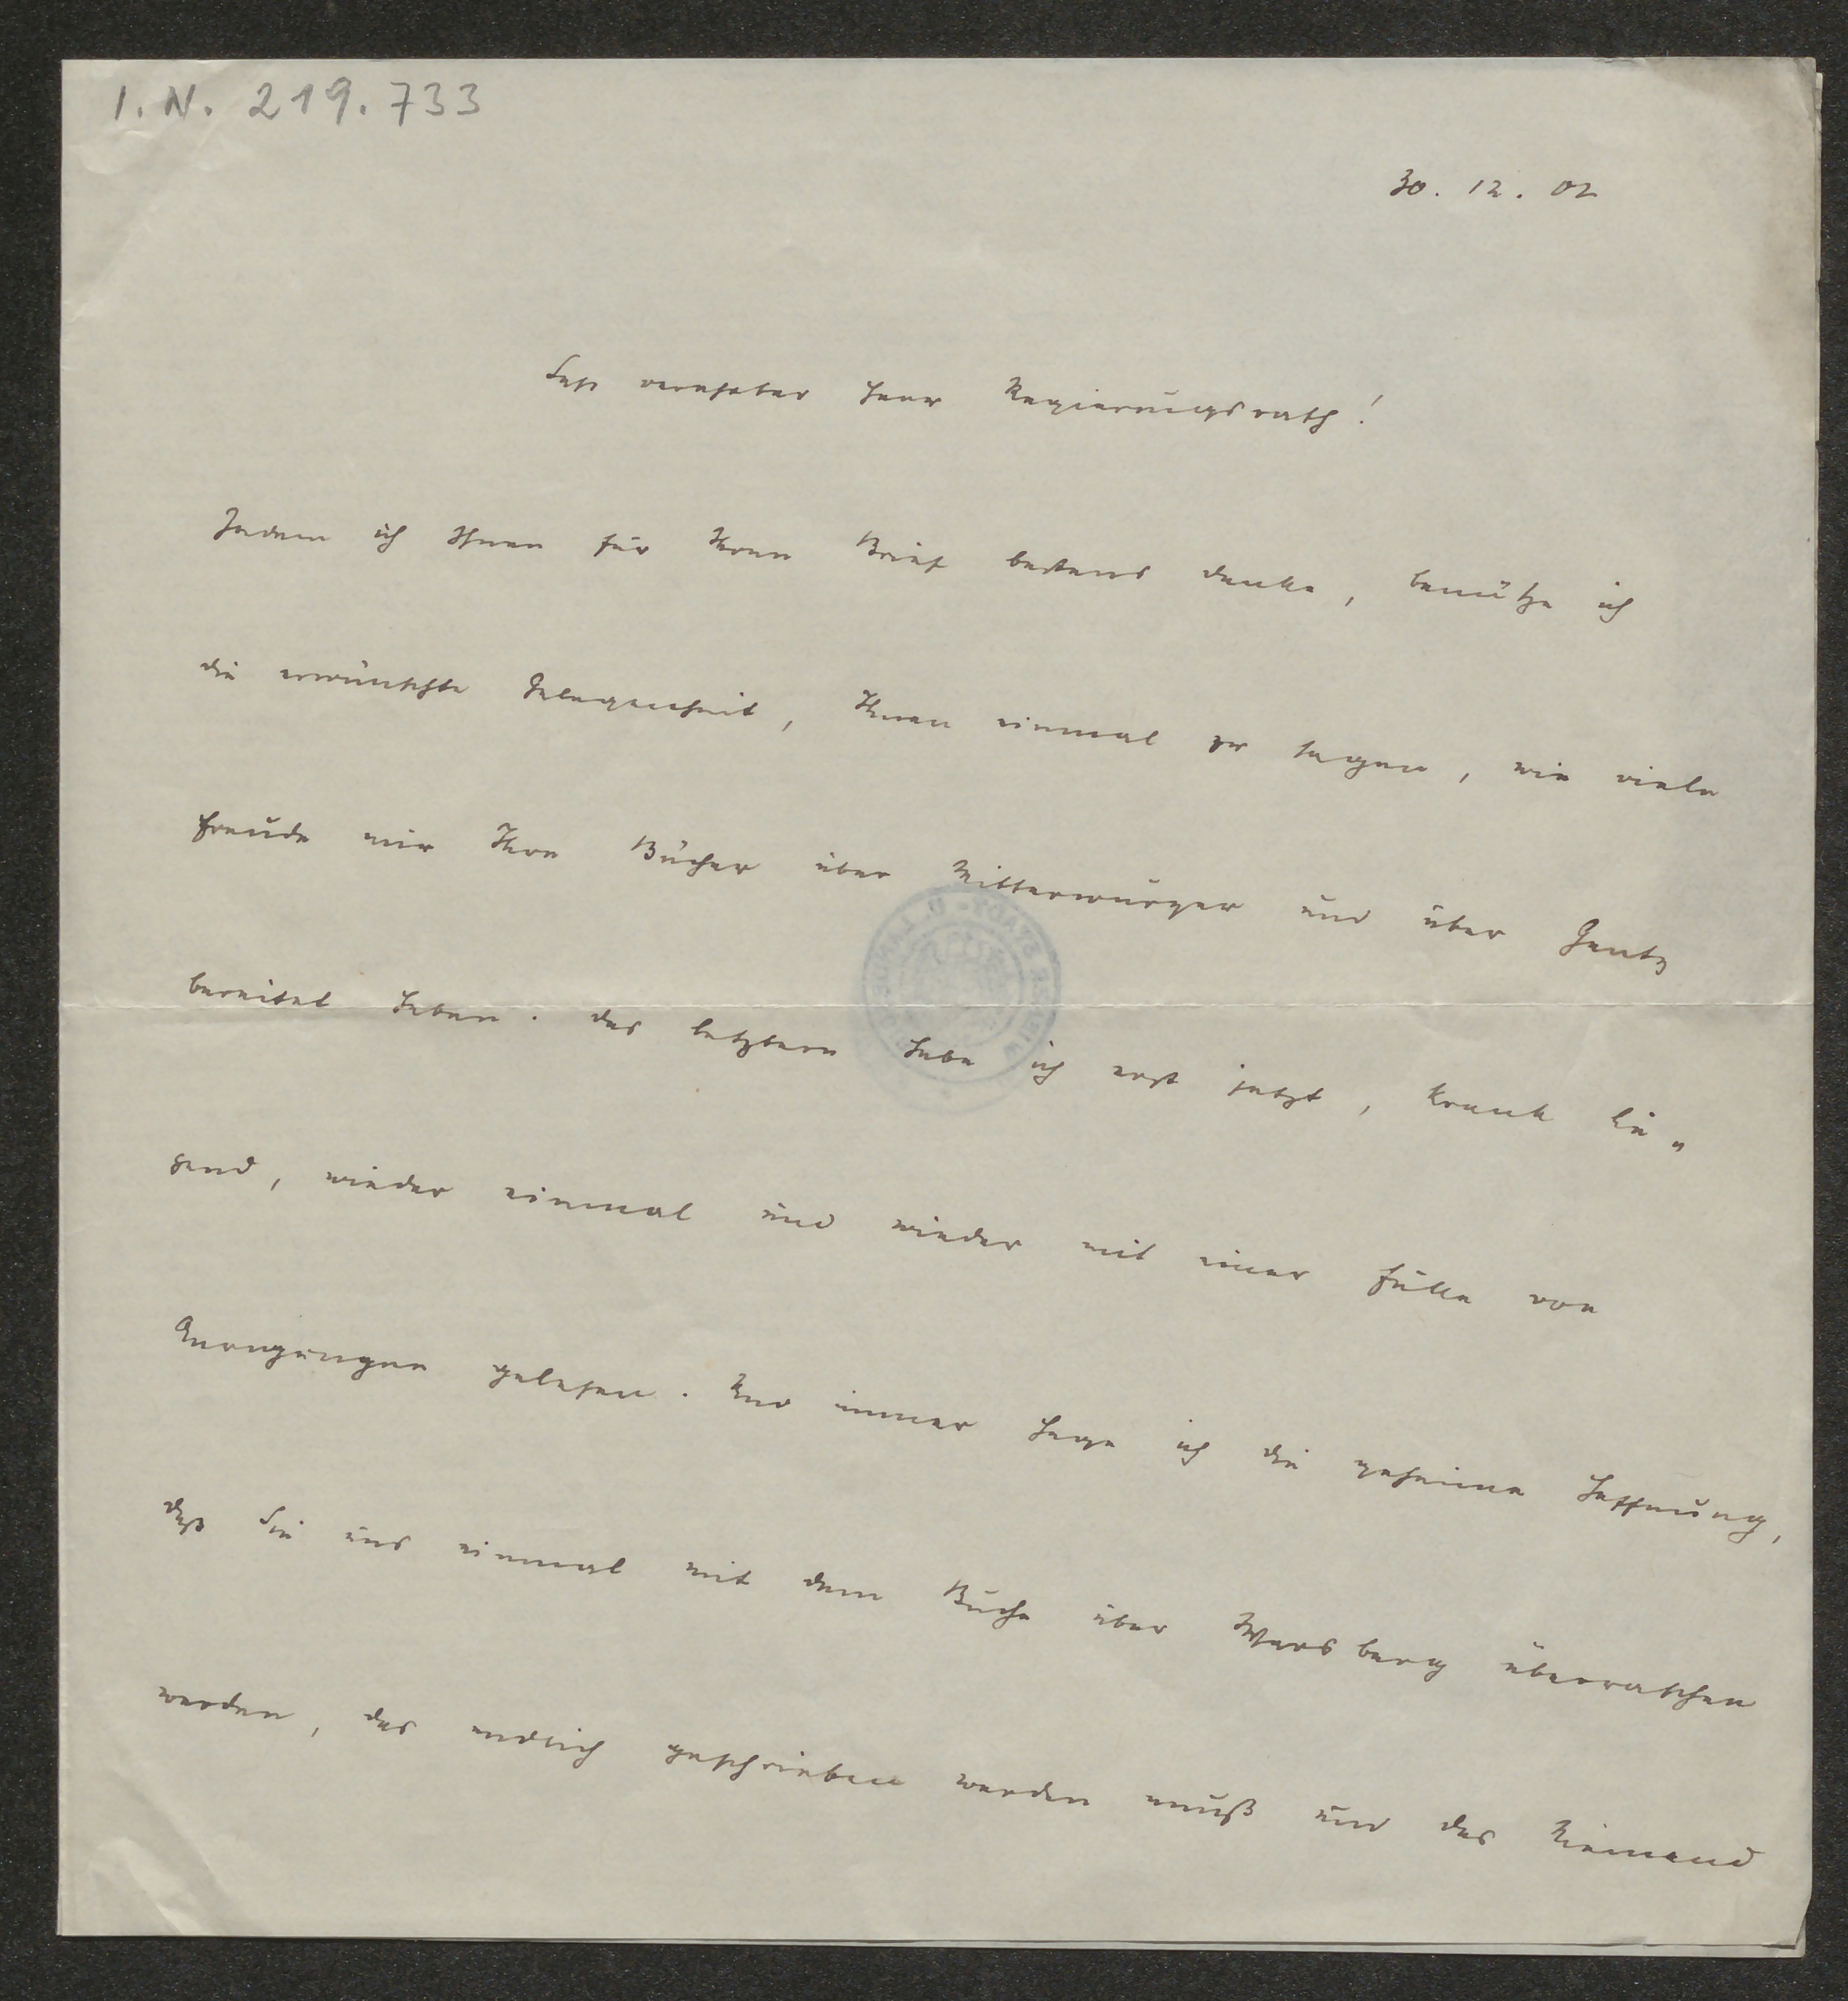 I.N. 219.733
30. 12. 02
Sehr verehrter Herr Regierungsrath!
Indem ich Ihnen für Ihren Brief bestens danke, benütze ich
die erwünschte Gelegenheit, Ihnen einmal zu sagen, wie viele
Freude mir Ihre Bücher über Mitterwurzer und über Gentz
bereitet haben. Das letztere habe ich erst jetzt, krank lie„
gend, wieder einmal und wieder mit einer Fülle von
Anregungen gelesen. Und immer hege ich die geheime Hoffnung,
daß Sie uns einmal mit dem Buche über Warsberg überraschen
werden, das endlich geschrieben werden muß und das Niemand